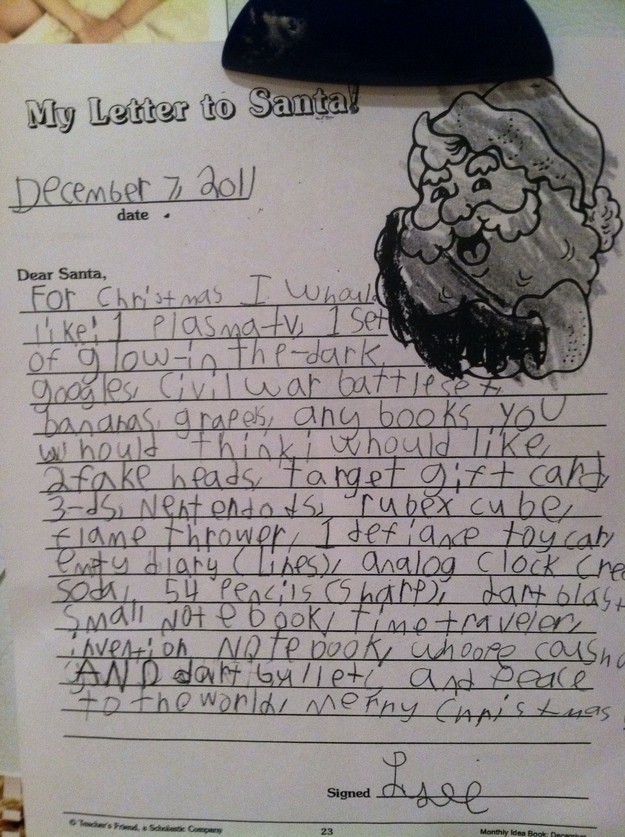 My Letter to Santa!
December 7, 2011
date
Dear Santa,
For Christmas I whould
like: 1 Plasma-tv, 1 set
of glow-in the-dark
googles, Civil war battle set,
bananas, grapes, any books you
whould think i whould like,
2 fake heads, target gift card,
3-ds, Nentendo ds, rubex cube,
flame thrower, 1 defiance toy car,
emty diary (lines), analog Clock Cre
soda, 54 Pencils (sharp), dart blast
small notebook, time traveler,
invention NOtebook, whoope
AND dart bullets, and Peace
to the world, merry Christmas
Signed
© Teacher's Friend, a Scholastic Company
23
Monthly Idea Book: December